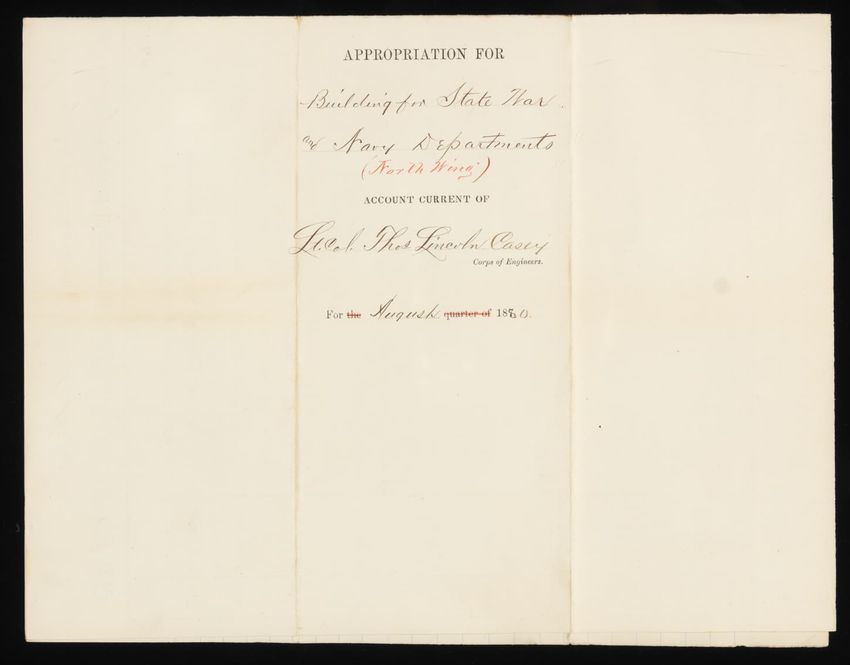 APPROPRIATION FOR
Building for State War
and Navy Departments
(North Wing)
ACCOUNT CURRENT OF
Lt. Col. Thos Lincoln Casey
Corps of Engineers.
For the August quarter of 1880.